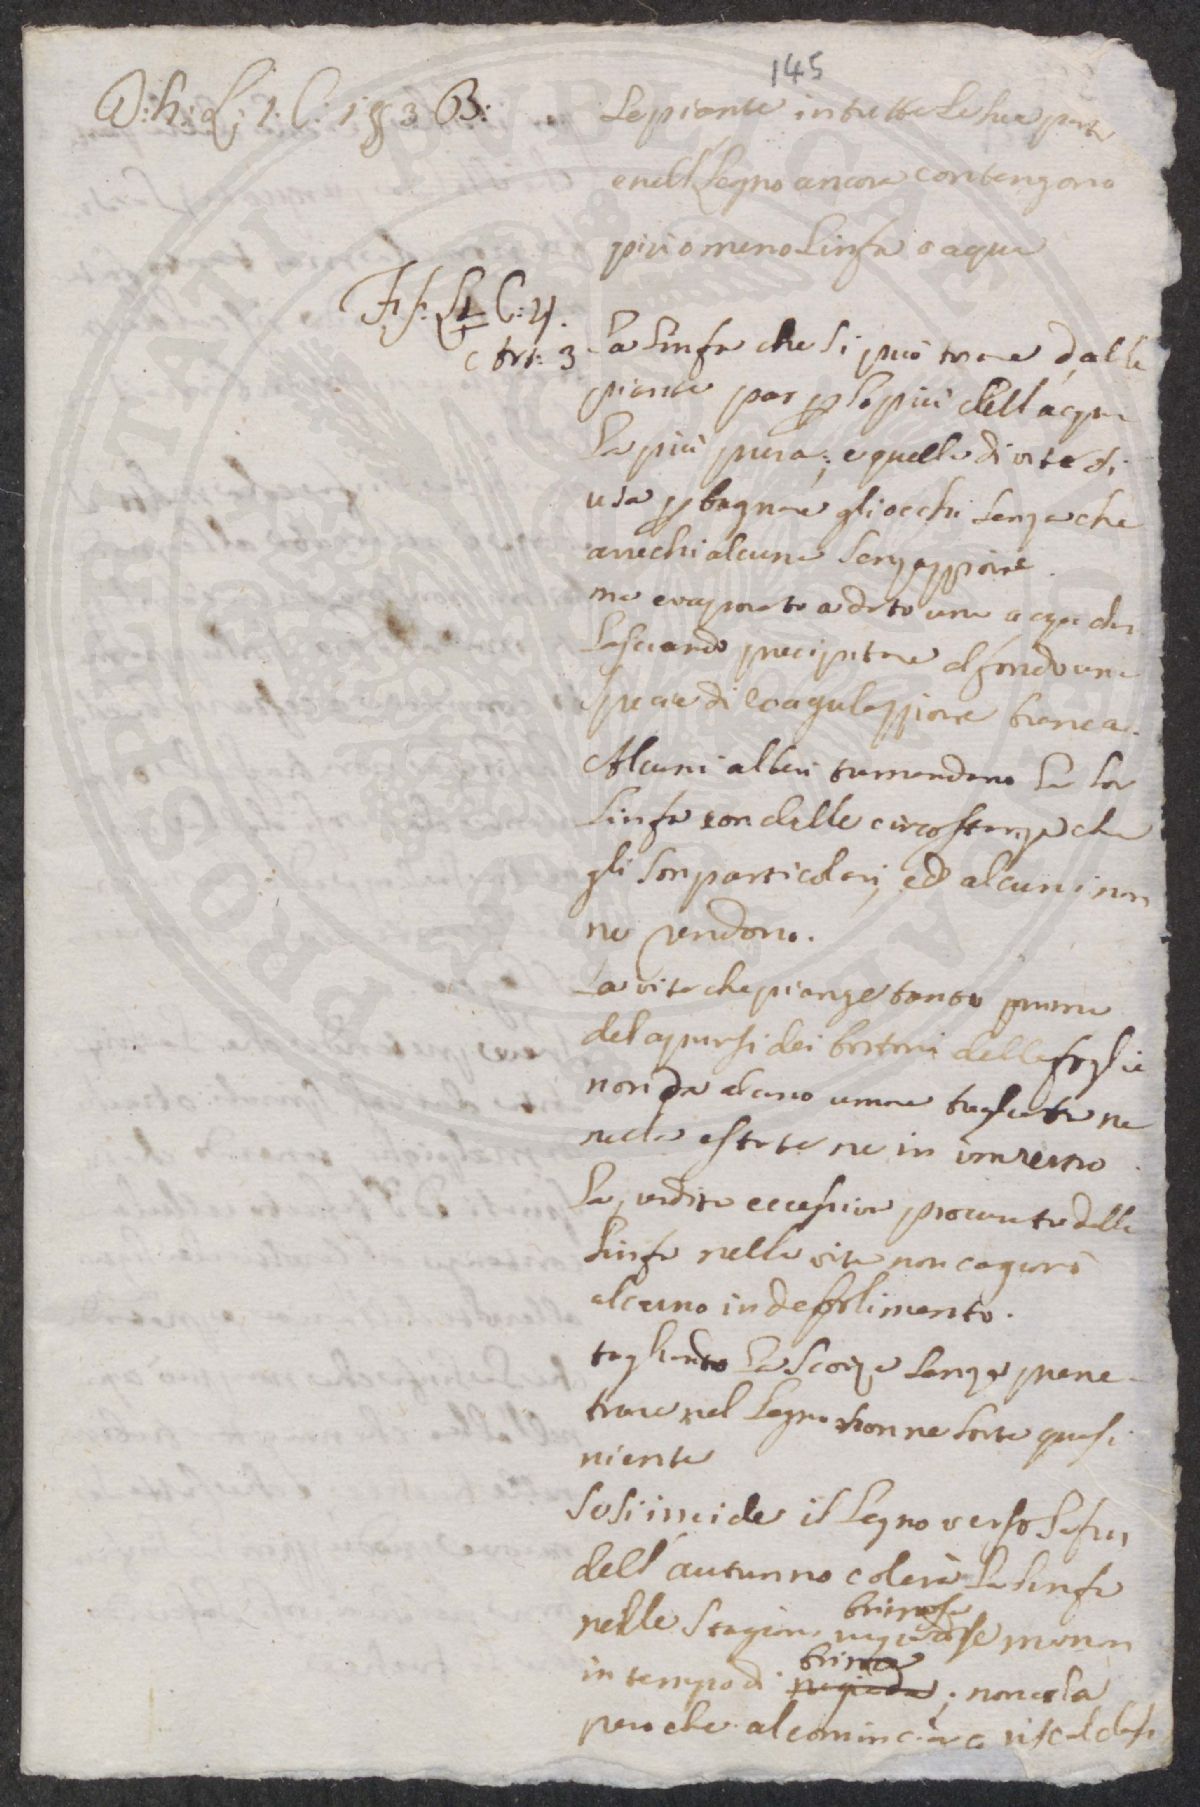 145
D: h: L; 1. C: 183 B:
Le piante in tutte le sue parti
e nell Legno ancora contengono
più o meno Linfa o aqua
F. f. L C: 4.
Art: 3
La Linfa che si può trare dalle
piante par p lo più dell'acqua
la più pura; e quella di vite si
usa p bagnare gli occhi senza che
arrechi alcuna
ma evaporata a dato una acqua che
Lasciando precipitare al fondo una
specie di coagulazzione bianca.
Alcuni alberi tramandano la lor
Linfa con delle circostanze che
gli son particolari, ed alcuni non
ne rendono.
La vite che piange tanto prima
del aprirsi dei bottoni delle foglie
non da alcuno umore tagliata ne
nella estate ne in inverno
La perdita eccessiva procurata della
Linfa nella vite non cagiona
alcuno indebolimento.
tagliando La Scorza senza pene
trare nel Legno non ne sorte quasi
niente
Se si incide il Legno verso La fin
dell'autunno colerà La Linfa
brinosa
nelle stagioni se mai non
brina
in tempo di rugiada; non cola
pero che al cominciar a riscaldarsi